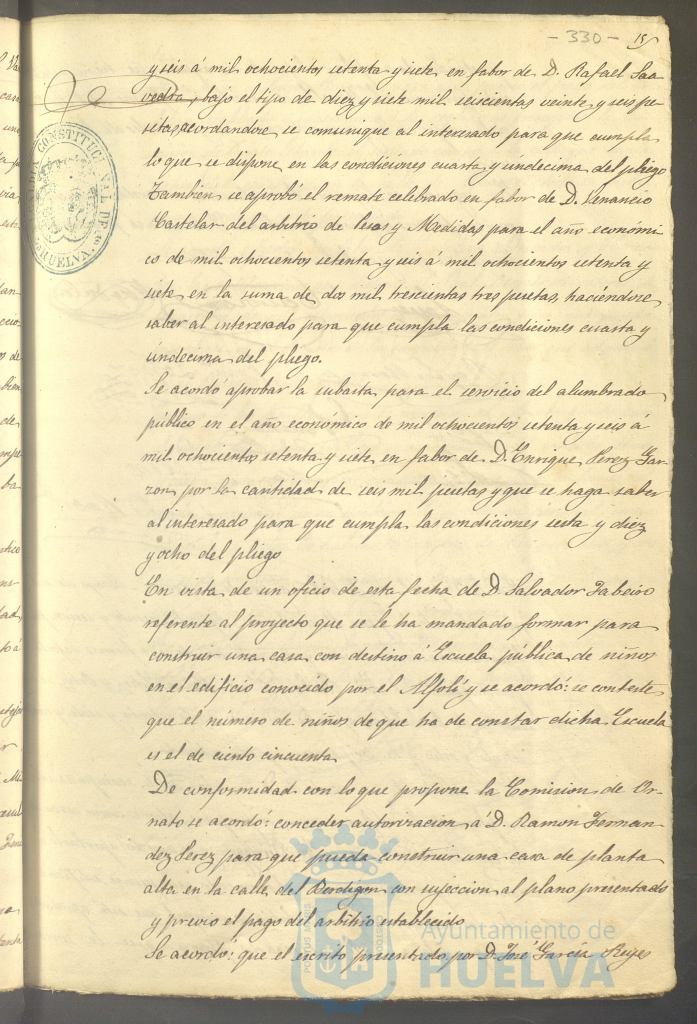 - 330 - 15
y seis á mil ochocientos setenta y siete en fabor de D. Rafael Saa
vedra, bajo el tipo de diez y siete mil seiscientas veinte y seis pe
setas, acordandose se comunique al interesado para que cumpla
lo que se dispone en las condiciones cuarta y undecima del pliego
Tambien se aprobó el remate celebrado en fabor de D. Venancio
Castelar del arbitrio de Pesas y Medidas para el año económi
co de mil ochocientos setenta y seis á mil ochocientos setenta y
siete en la suma de dos mil trescientas tres pesetas, haciéndose
saber al interesado para que cumpla las condiciones cuarta y
undecima del pliego.
Se acordó aprobar la subasta para el servicio del alumbrado
público en el año económico de mil ochocientos setenta y seis á
mil ochocientos setenta y siete en fabor de D. Enrique Perez Gar-
zon por la cantidad de seis mil pesetas y que se haga saber
al interesado para que cumpla las condiciones sesta y diez
y ocho del pliego
En vista de un oficio de esta fecha de D. Salvador
referente al proyecto que se le ha mandado formar para
construir una casa con destino á Escuela pública de niños
en el edificio conocido por el Alfolí y se acordó: se conteste
que el número de niños de que ha de constar dicha Escuela
es el de ciento cincuenta
De conformidad con lo que propone la Comision de Or-
nato se acordó: conceder autorizacion á D. Ramon Fernan
dez Perez para que pueda construir una casa de planta
alta en la calle del Berdigon con sujeccion al plano presentado
y previo el pago del arbitrio establecido
Se acordó: que el escrito presentado por D. José García Reyes
ALCALDIA CONSTITUCIONAL DE HUELVA
Ayuntamiento de
HUELVA